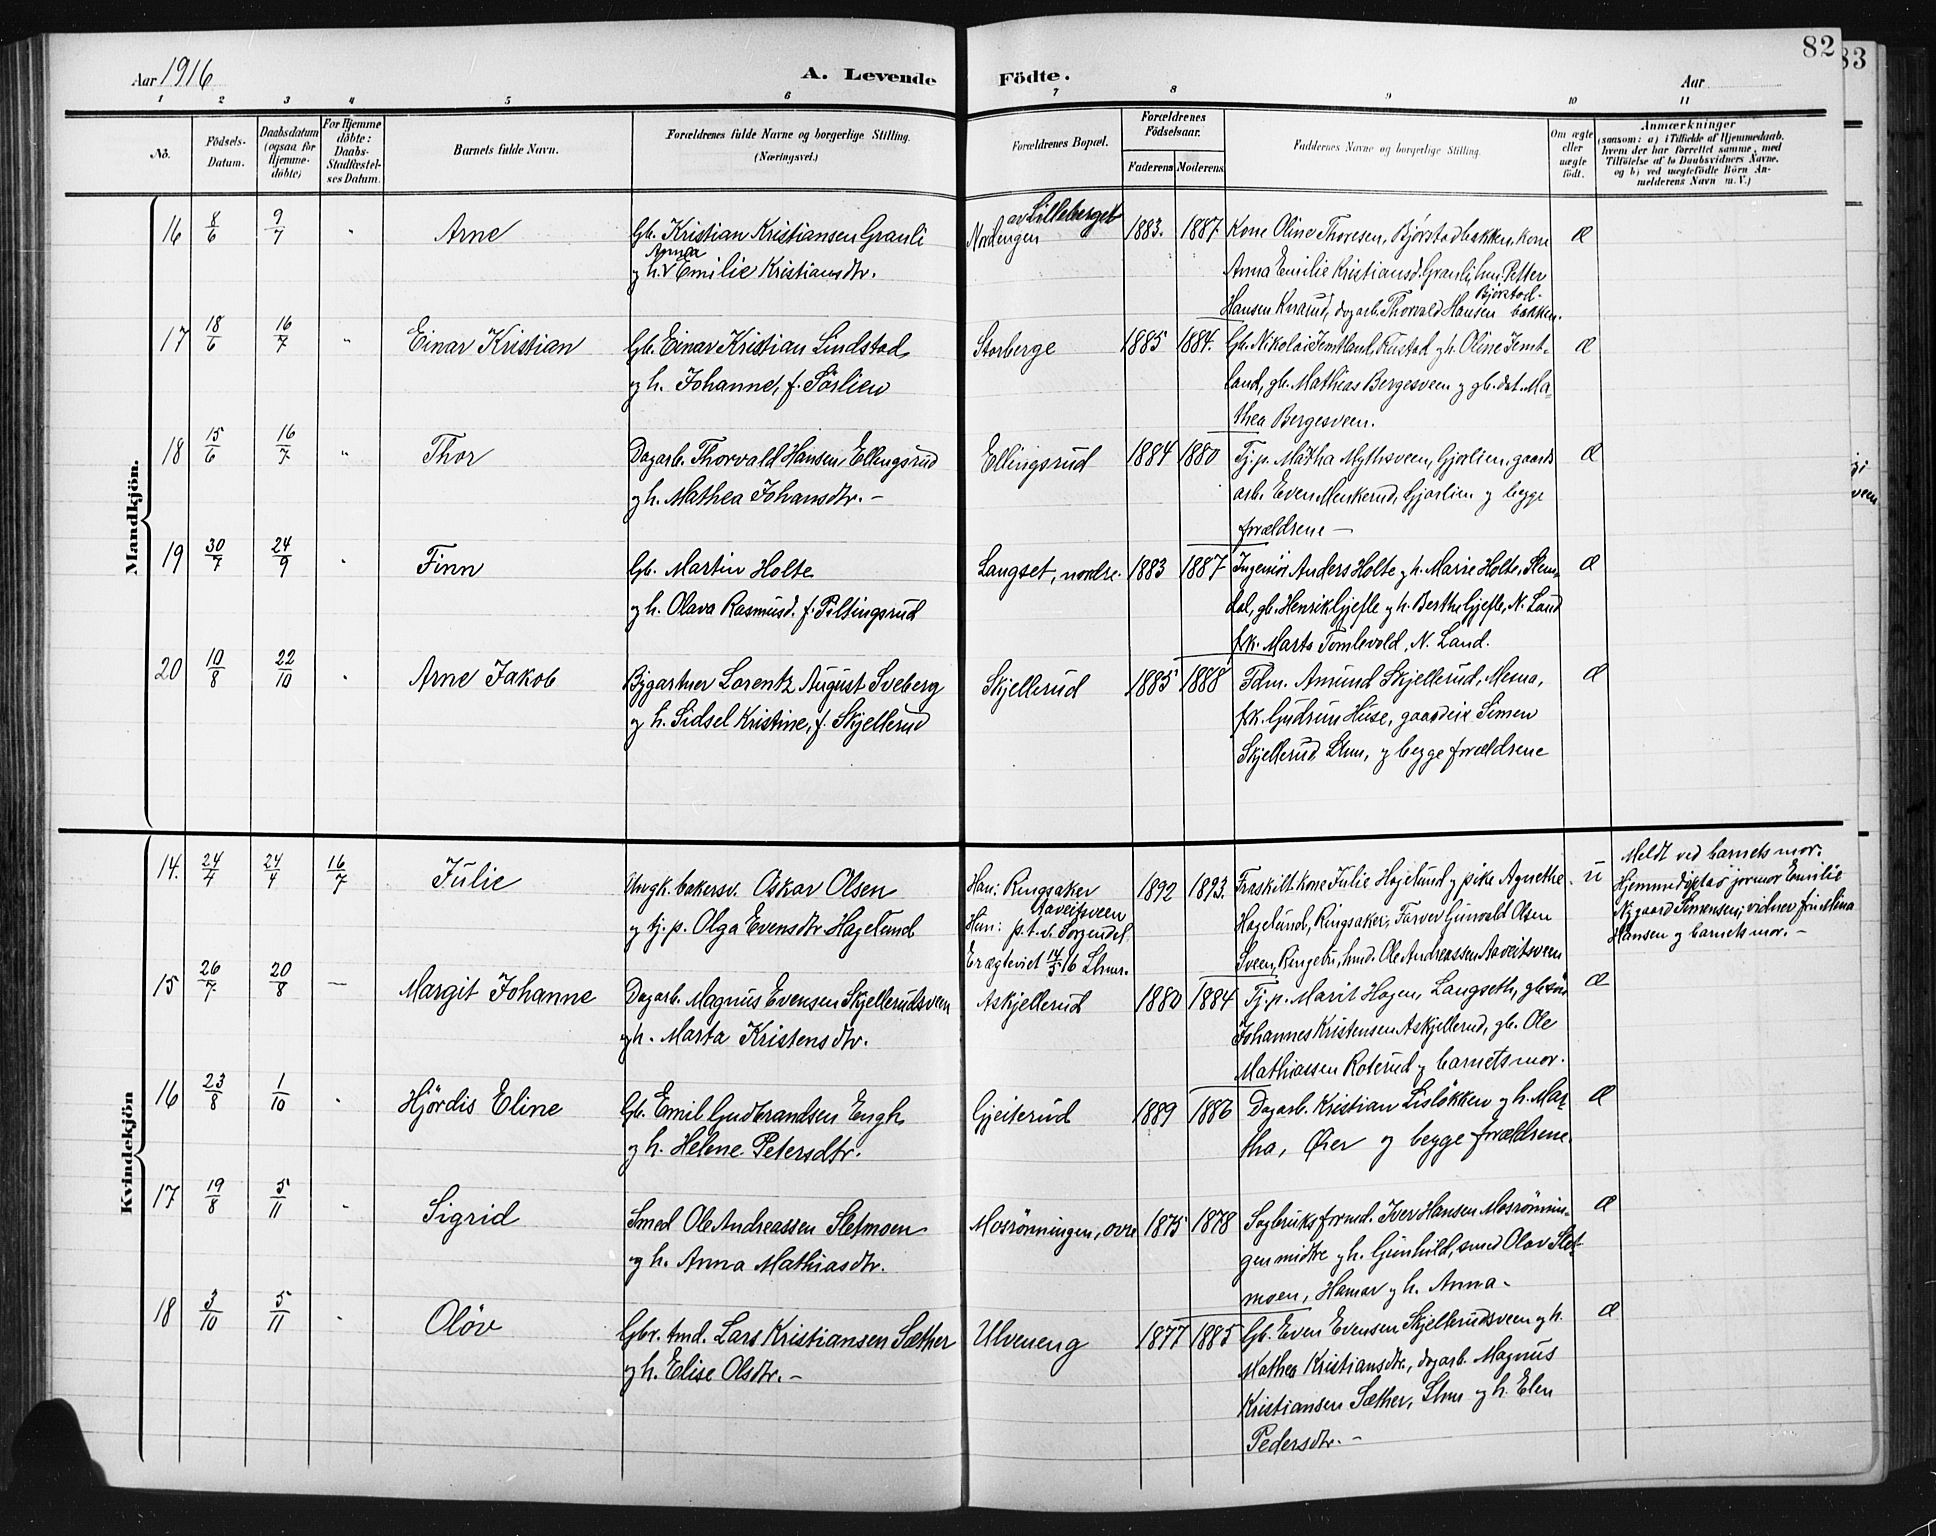 82
83
Aar 1916
A. Levende Födte.
Aar
1 2 3 4 5 6 7 8 9 10 11
No.
Födsels-Datum.
Daabsdatum (ogsaa for Hjemme-döbte)
For Hjemme döbte: Daabs-Stadfæstel-ses Datum.
Barnets fulde Navn.
Forældrenes fulde Navne og borgerlige Stilling.
(Næringsvei.)
Forældrenes Bopæl.
Forældrenes Födselsaar.
Faderens Moderens
Faddernes Navne og borgerlige Stilling.
Om ægte eller uægte födt.
Anmærkninger
(saasom: a) i Tilfælde af Hjemmedaab, hvem der har forrettet samme, med Tilföielse af to Daabsvidners Navne, og b) ved uægtefödte Börn An-melderens Navn m. V.)
Mandkjön.
16 8/6 9/7 " Arne
Gb. Kristian Kristiansen Granli
og h. Anna Emilie Kristiansdtr.
Nordengen av Lilleberget
1883. 1887
Kone Oline Thoresen, Bjørstadbakken, kone
Anna Emilie Kristiansd. Granli, hm. Petter
Hansen Knarud, dagarb. Thorvald Hansen Bjørstad-bakken.
Æ
17 18/6 16/7 " Einar Kristian
Gb. Einar Kristian Lindstad
og h. Johanne, f. Sörlien
Storberge
1885 1884.
Gb. Nikolai Jemtland, Faistad og h. Oline Jemt-
land, gb. Mathias Bergesveen og gb. dat. Ma-
thea Bergesveen.
Æ
18 15/6 16/7 " Thor
Dagarb. Thorvald Hansen Ellingsrud
og h. Mathea Johansdtr. -
Ellingsrud
1884 1880
Tj. p. Martha Mythsveen, Gjørlien, gaards
arb. Even Menkerud, Gjørlien og begge
forældrene -
Æ
19 30/7 24/9 " Finn
Gb. Martin Holte
og h. Olava Rasmusd. f. Piltingsrud
Langset, nordre.
1883 1887
Ingeniör Anders Holte og h. Marie Holte, Slem-
dal, gb. Henrik Gjefle og h. Berthe Gjefle, N. Land
frk. Marta Tomlevold, N. Land.
Æ
20 10/8 22/10 " Arne Jakob
Bygartner Lorentz August Sveberg
og h. Sidsel Kristine, f. Skjellerud
Skjellerud
1885 1888
Tdm. Amund Skjellerud, Mesna,
frk. Gudrun Huse, gaardeier Simen
Skjellerud Lhm, og begge forældrene
Æ
Kvindekjön
14. 24/4 24/4 16/7 Julie
Ungk. bakersv. Oskar Olsen
og tj. p. Olga Evensdtr Hagelund
Han: Ringsaker
Hun: p.t. v. Aaveitsveen
Erægteviet 14/5 16 Lhmr.
1892 1893.
Fraskilt kone Julie Hagelund og pike Agnethe
Hagelund, Ringsaker, Farver Gunvald Olsen
Sveen, Ringebu, hmd. Ole Andreassen Aaveitsveen
u
Meldt ved barnets mor.
Hjemmedöptes jormor Emilie
Nygaard Simensen; vidner fru Stina
Hansen og barnets mor. -
15 26/7 20/8 — Margit Johanne
Dagarb. Magnus Evensen Skjellerudsveen
og h. Marta Kristensdtr.
Askjellerud
1880 1884
Tj. p. Marit Hagen, Langseth, gb. sön
Johannes Kristensen Askjellerud, gb. Ole
Mathiassen Roterud og barnets mor.
Æ
16 23/8 1/10 " Hjördis Eline
Gb. Emil Gudbrandsen Engh
og h. Helene Petersdtr.
Gjeiterud
1889 1886
Dagarb. Kristian Lislökken og h. Mar-
tha, Öier og begge forældrene.
Æ
17 19/8 5/11 " Sigrid
Smed Ole Andreassen Sletmoen
og h. Anna Mathiasdtr.
Mosrönningen, övre
1875 1878
Sagbruksformd. Iver Hansen Mosrönnin-
gen midtre og h. Gunhild, smed Olav Slet-
moen, Hamar og h. Anna -
Æ
18 3/10 5/11 " Olöv
Gbr. tmd. Lars Kristiansen Sæther
og h. Elise Olsdtr. -
Ulveneng
1877 1885
Gb. Even Evensen Skjellerudsveen og h.
Mathea Kristiansdtr., dagarb. Magnus
Kristiansen Sæther, Lhm og h. Elen
Pedersdtr. -
Æ